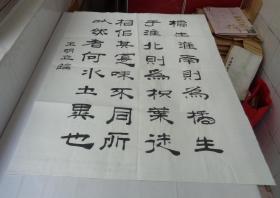 橘生淮南則為橘生
于淮北則為枳葉徒
相似其實味不同所
以然者何水土異也
王明亞臨